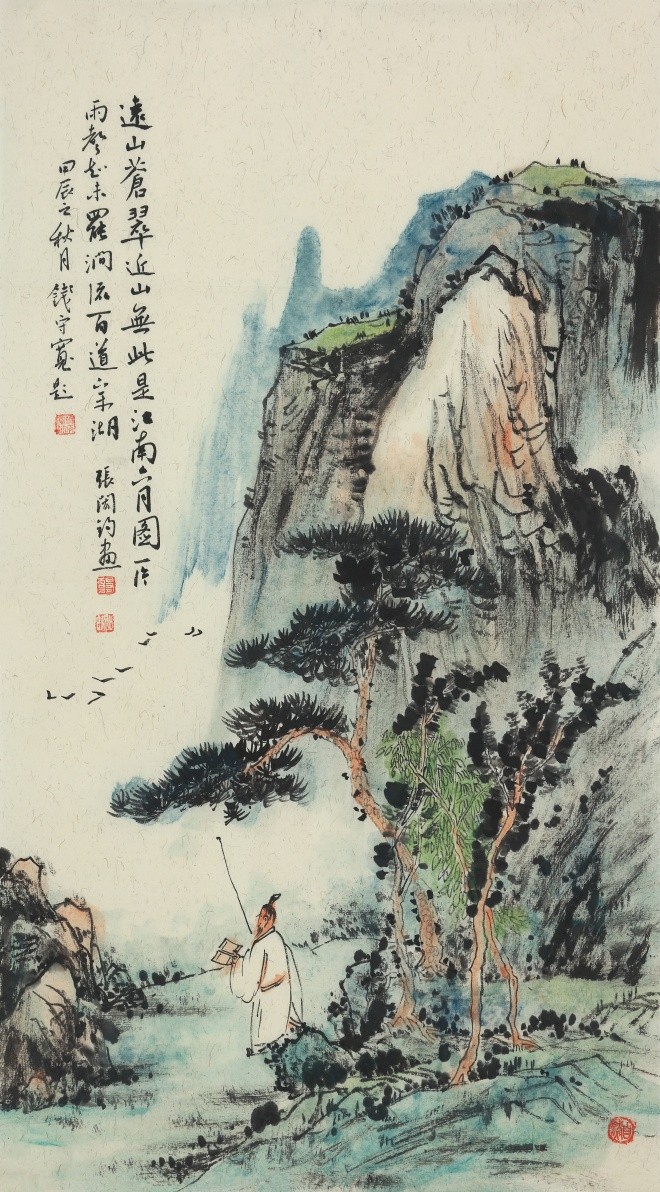 遠山蒼翠近山無此是江南六月圖一片
雨聲知未罷澗流百道入湖
張 畫
甲辰之秋月錢守寬題